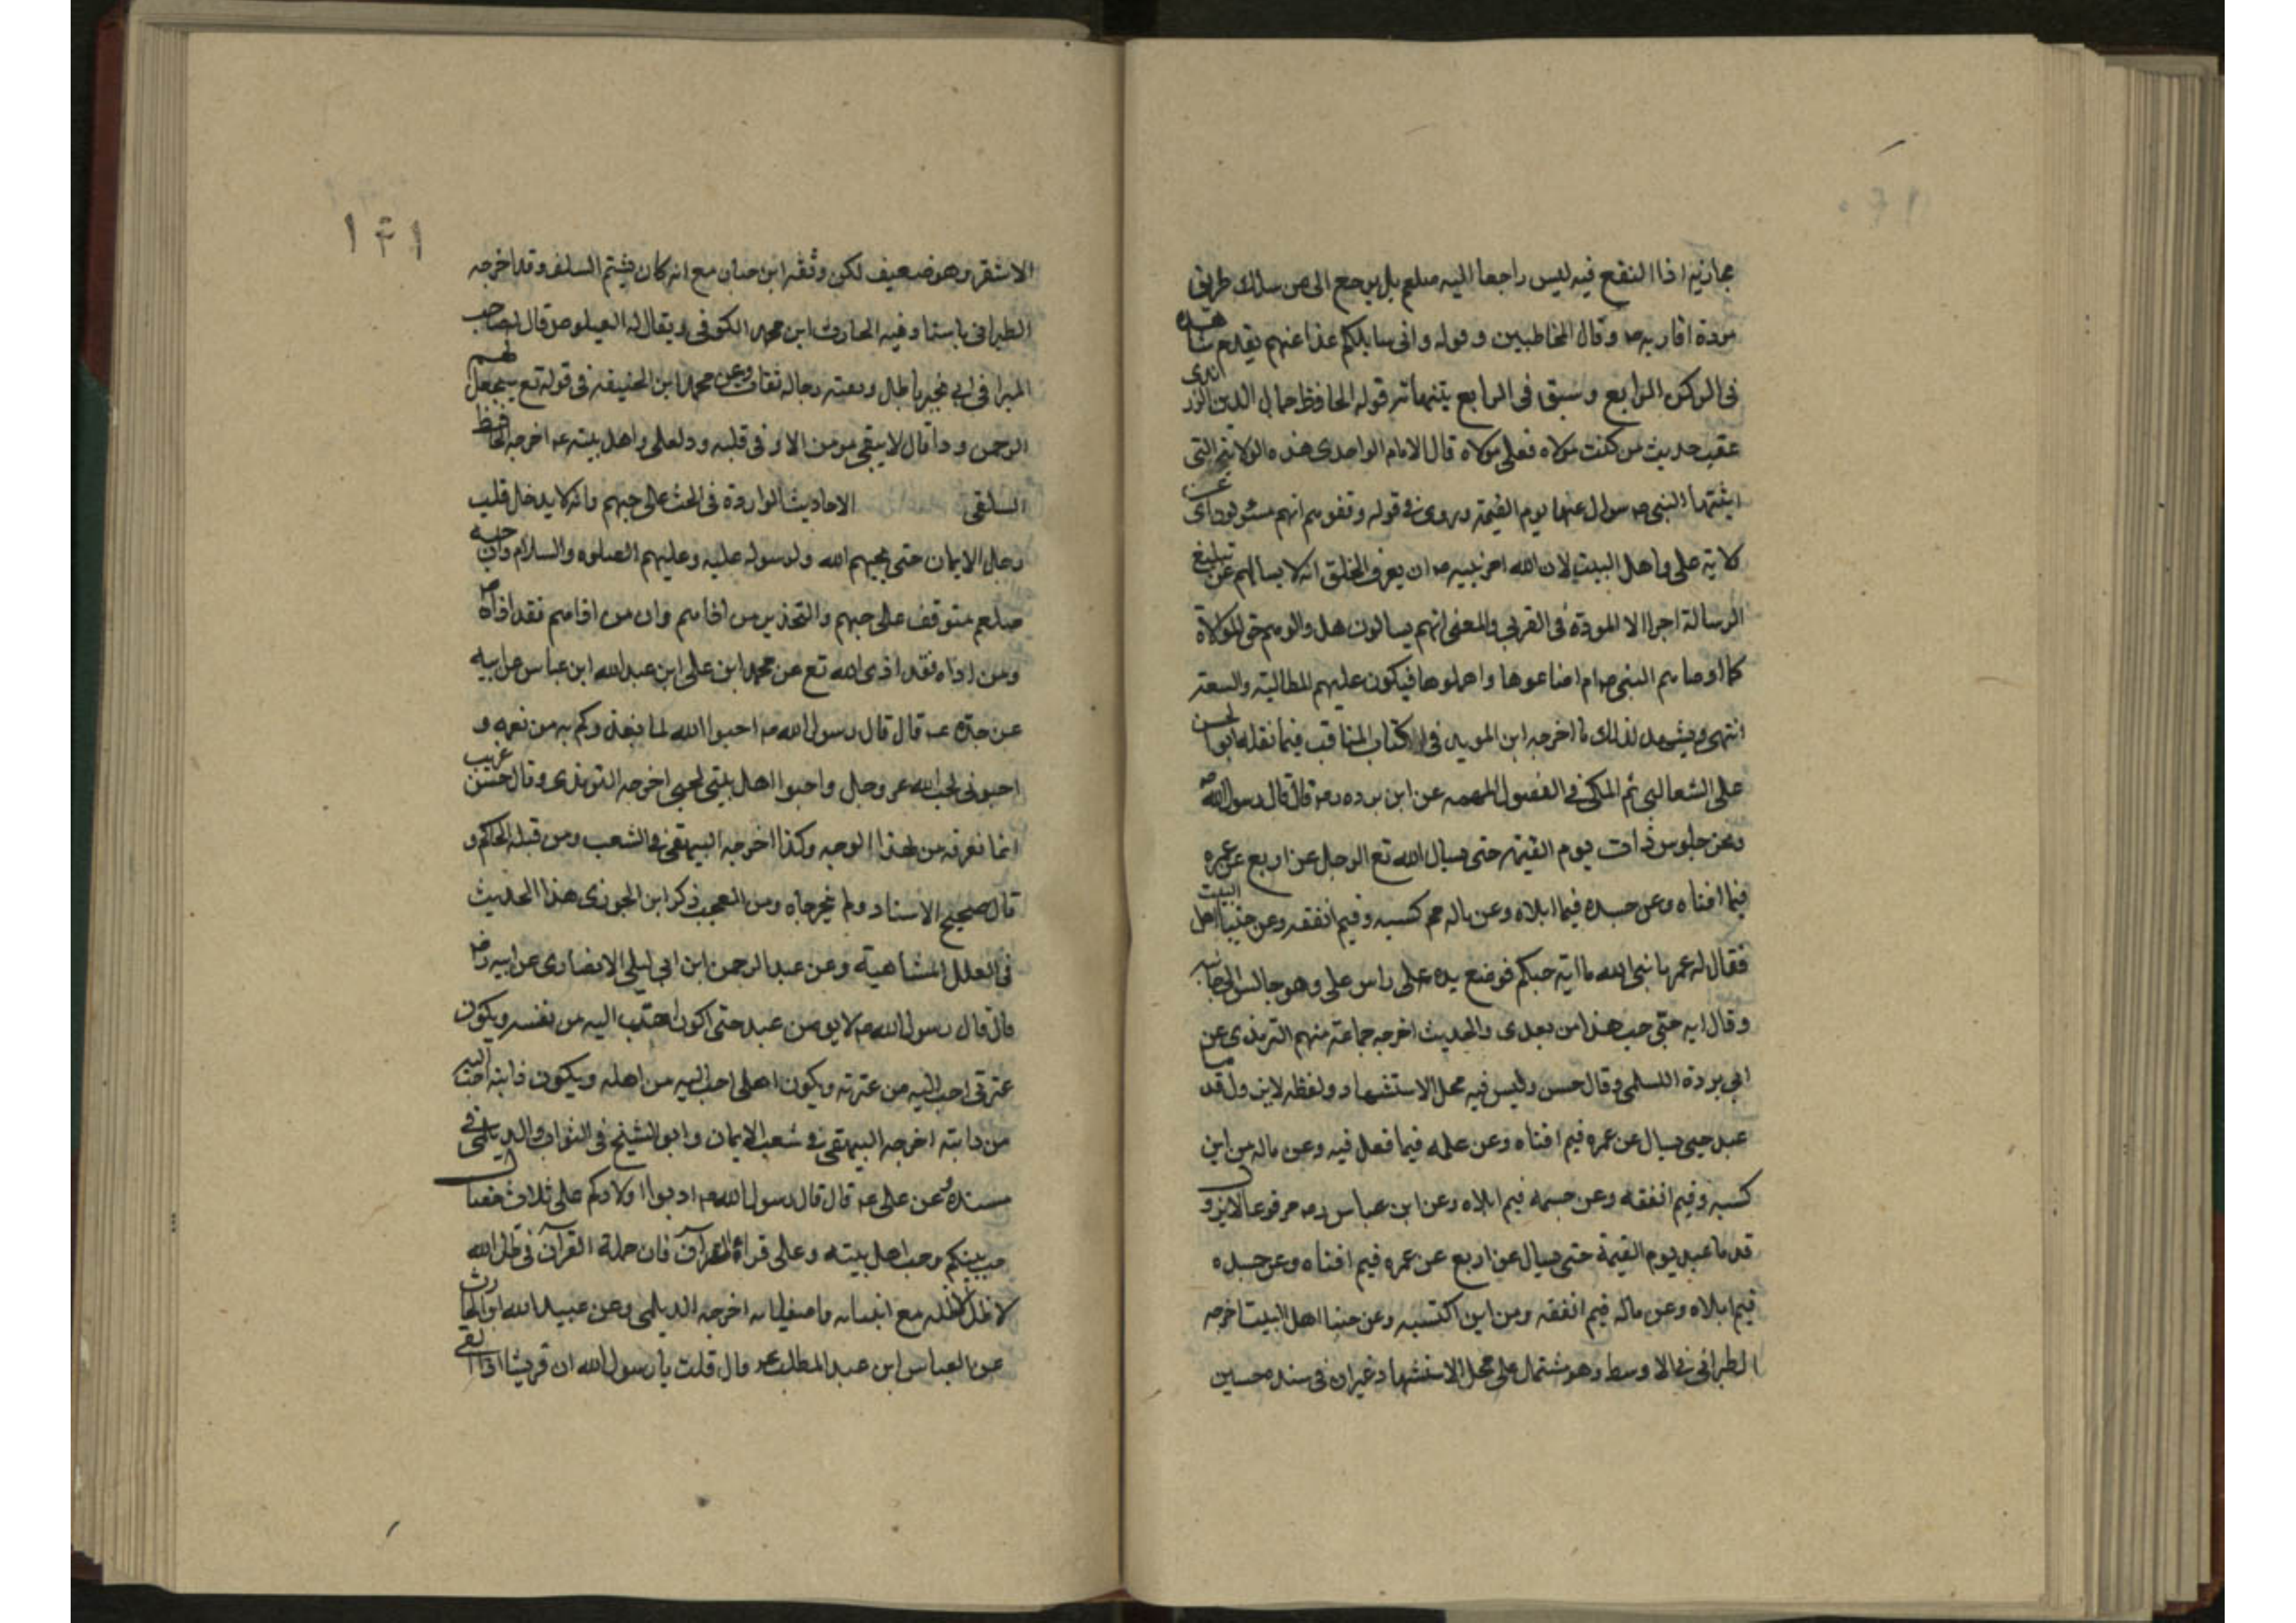 مجازيه اذا النفع فيه ليس راجعا اليه صلعم بل يرجع الى من سلك طريق
مودة اقاربه صه وقال المخاطبين وقوله وانى سايلكم غدا عنهم يقدم شاهده
فى الركن الرابع وسبق فى الرابع قوله الحافظ جمال الدين الزرندى
عقب حديث من كنت مولاه فعلى مولاه قال الامام الواحدى هذه الولاية التى
اثبتها النبى صه سوال عنها يوم القيمة وروى فى قوله وقفوهم انهم مسئولون اى عن
كلاية على واهل البيت لان الله امر نبيه صه ان يعرف الخلق انه لا يسالهم عن تبليغ
الرسالة اجرا الا المودة فى القربى والمعنى انهم يسالون هل والوهم حق الموكلاة
كما اوصاهم النبى صه ام اضاعوها واهملوها فيكون عليهم المطالبة والسعة
انتهى ويشهد لذلك ما اخرجه ابن المويد فى كتاب المناقب فيما نقله ابو الحسن
على الشعالبى ثم المكى فى الفصول المهمه عن ابن برده رضه قال قال رسول الله صه
ونحن جلوس ذات يوم القيمة حتى يسال الله تع الرجل عن اربع عن عمره
فيما افناه وعن جسده فيما ابلاه وعن ماله مم كسبه وفيم انفقه وعن حبنا اهل البيت
فقال له عمر يا نبى الله ما اية حبكم فوضع يده على راس على وهو جالس الى جانبه
وقال ايه حبى حب هذا من بعدى والحديث اخرجه جماعة منهم الترمذى عن
ابى بردة السلمى وقال حسن وليس فيه محل الاستشهاد ولفظه لاين ول قدما
عبد حتى يسال عن عمره فيم افناه وعن علمه فيما فعل فيه وعن ماله من اين
كسبه وفيم انفقه وعن جسمه فيم ابلاه وعن ابن عباس رضه مرفوعا لا يزول
قدما عبد يوم القيمة حتى يسال عن اربع عن عمره فيم افناه وعن جسده
فيم ابلاه وعن ماله فيم انفقه ومن اين اكتسبه وعن حبنا اهل البيت اخرجه
الطبرانى فى الاوسط وهو مشتمل على محل الاستشهاد غير ان فى سنده حسين
١٤١
الاشقر وهو ضعيف لكن وثقه ابن حبان مع انه كان يشتم السلف وقد اخرجه
الطبرانى باسناد فيه الحارث ابن محمد الكوفى ويقال له قال صاحب
رجاله ثقات وعن محمد ابن الحنيفة فى قوله تع سيجعل لهم
الرحمن ودا قال لا يبقى مومن الا و فى قلبه ود لعلى واهل بيته عه اخرجه الحافظ
السلفى الاحاديث الواردة فى الحث على حبهم وانه لا يدخل قلب
رجل الايمان حتى يحبهم الله ولرسوله عليه وعليهم الصلوه والسلام وان حبه
صلعم متوقف على حبهم والتحذير من اذاهم وان من اذاهم فقد اذاه صه
ومن اذاه فقد اذى الله تع عن محمد ابن على ابن عبد الله ابن عباس عن ابيه
عن جده عه قال قال رسول الله صه احبوا الله لما يغذوكم به من نعمه و
احبونى لحب الله عز وجل واحبوا اهل بيتى لحبى اخرجه الترمذى وقال حسن غريب
انما نعرفه من هذا الوجه وكذا اخرجه البيهقى فى الشعب ومن قبله الحاكم و
قال صحيح الاسناد ولم يخرجاه ومن العجب ذكر ابن الجوزى هذا الحديث
فى العلل المتناهية وعن عبد الرحمن ابن ابى ليلى الانصارى عن ابيه رضه
قال قال رسول الله صه لا يومن عبد حتى اكون احب اليه من نفسه ويكون
عترتى احب اليه من عترته ويكون اهلى احب اليه من اهله ويكون ذاتى احب اليه
من ذاته اخرجه البيهقى فى شعب الايمان وابو الشيخ فى الثواب والديلمى فى
مسنده وعن على عه قال قال رسول الله صه ادبوا اولادكم على ثلاث خصال
حب نبيكم وحب اهل بيته وعلى قراة القران فان حملة القران فى ظل الله
لا ظل الا ظله مع انبيائه واصفيائه اخرجه الديلمى وعن عبيد الله ابن الحارث
عن العباس ابن عبد المطلب عه قال قلت يا رسول الله ان قريشا اذا